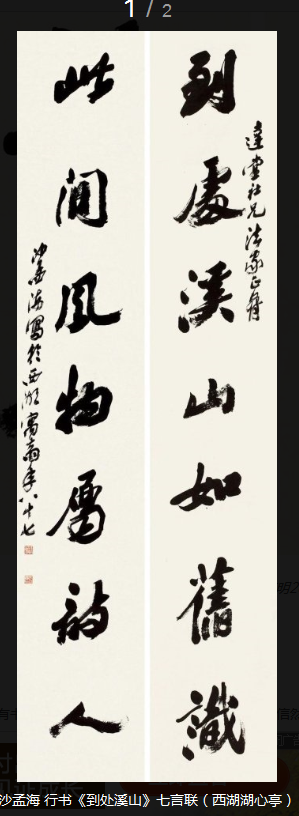 1 / 2
達堂社兄法家正腕
到處溪山如舊識
此間風物屬詩人
沙孟海寫於西湖寓齋年八十七
沙孟海 行书《到处溪山》七言联（西湖湖心亭）